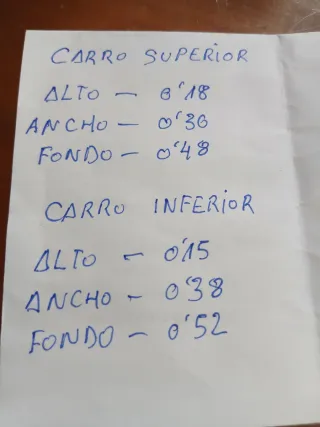 CARRO SUPERIOR
ALTO — 0'18
ANCHO — 0'36
FONDO — 0'48
CARRO INFERIOR
ALTO — 0'15
ANCHO — 0'38
FONDO — 0'52